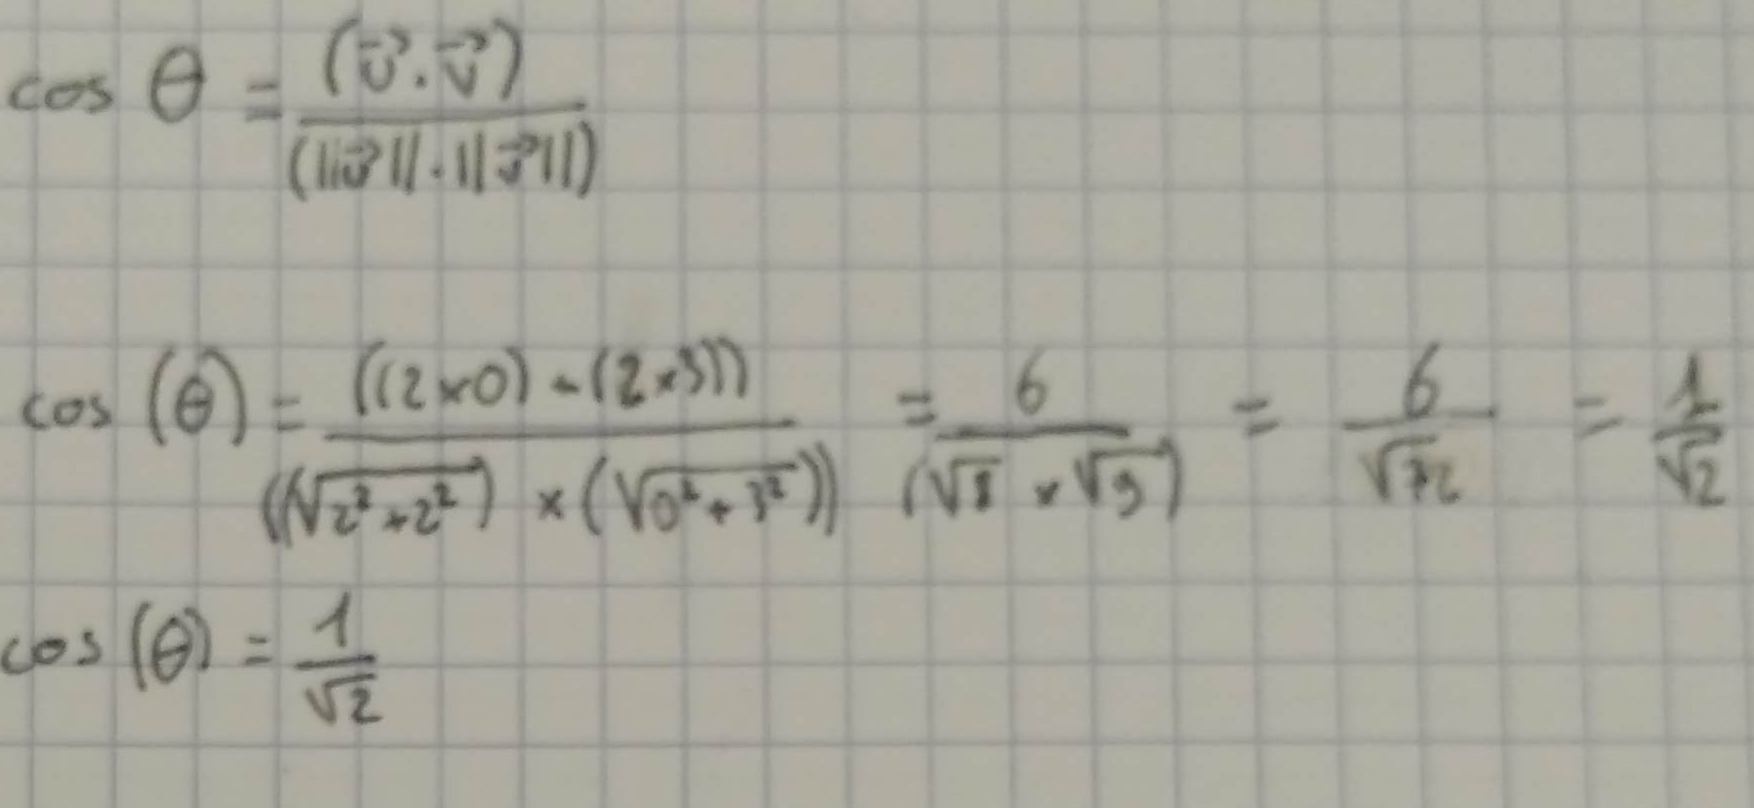 cos θ = (u⃗ . v⃗) / (||u⃗|| . ||v⃗||)
cos (θ) = ((2×0) + (2×3)) / ((√(2² + 2²)) × (√(0² + 3²))) = 6 / (√8 × √9) = 6 / √72 = 1 / √2
cos (θ) = 1 / √2